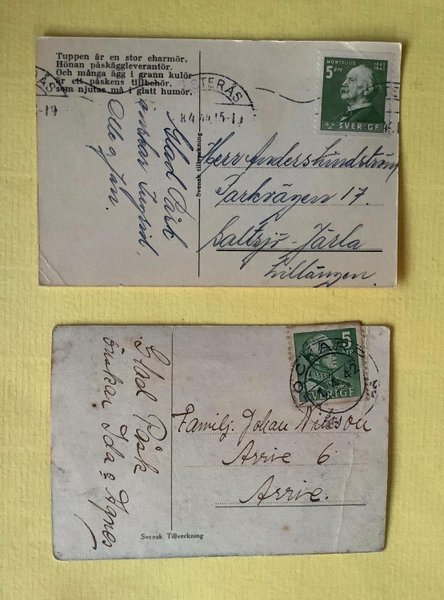 Tuppen är en stor charmör.
Hönan påskäggleverantör.
Och många ägg i grann kulör
är ett påskens tillbehör,
som njutas må i glatt humör.
TERÅS
8.4.44.15-19
MONTELIUS 1843 1943
5 ÖRE
SVERIGE
Glad Påsk
önskar Ingrid
Olle o Jan.
Svensk tillverkning
Herr Anders Lindström
Parkvägen 17.
Saltsjö-Järla
Lillängen.
5
SVERIGE
Glad Påsk
önskar Ida & Agnes
Familj. Johan Nilsson
Arrie 6
Arrie.
Svensk Tillverkning